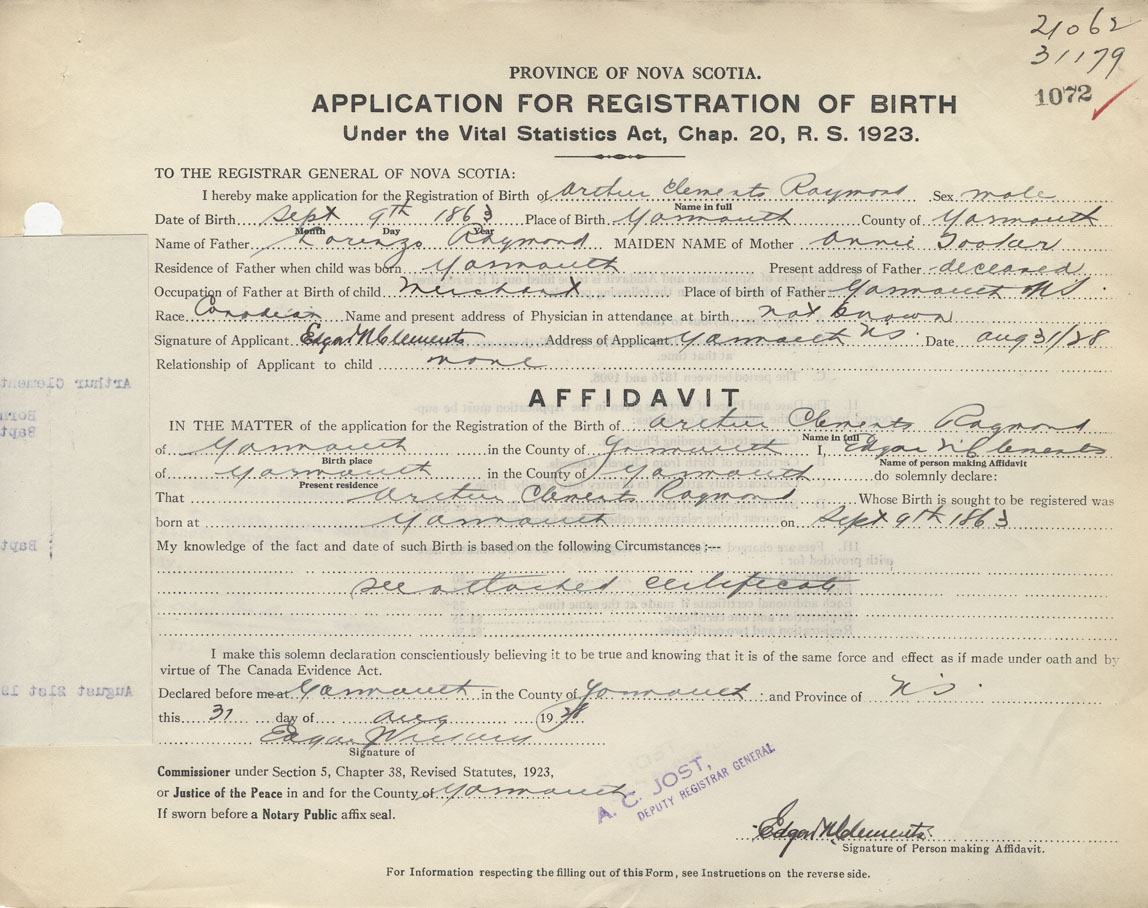 21062
31179
1072
PROVINCE OF NOVA SCOTIA.
APPLICATION FOR REGISTRATION OF BIRTH
Under the Vital Statistics Act, Chap. 20, R. S. 1923.
TO THE REGISTRAR GENERAL OF NOVA SCOTIA:
I hereby make application for the Registration of Birth of Arthur Clements Raymond Sex male
Name in full
Date of Birth Sept 9th 1863 Place of Birth Yarmouth County of Yarmouth
Month Day Year
Name of Father Lorenzo Raymond MAIDEN NAME of Mother Annie Tooker
Residence of Father when child was born Yarmouth Present address of Father deceased
Occupation of Father at Birth of child Merchant Place of birth of Father Yarmouth NS
Race Canadian Name and present address of Physician in attendance at birth not known
Signature of Applicant Edgar N Clements Address of Applicant Yarmouth NS Date Aug 31/28
Relationship of Applicant to child none
AFFIDAVIT
IN THE MATTER of the application for the Registration of the Birth of Arthur Clements Raymond
Name in full
of Yarmouth in the County of Yarmouth I, Edgar N Clements
Birth place Name of person making Affidavit
of Yarmouth in the County of Yarmouth do solemnly declare:
Present residence
That Arthur Clements Raymond Whose Birth is sought to be registered was
born at Yarmouth on Sept 9th 1863
My knowledge of the fact and date of such Birth is based on the following Circumstances:—
see attached certificate
I make this solemn declaration conscientiously believing it to be true and knowing that it is of the same force and effect as if made under oath and by
virtue of The Canada Evidence Act.
Declared before me at Yarmouth in the County of Yarmouth and Province of NS.
this 31 day of Aug 1928
Edgar
Signature of
Commissioner under Section 5, Chapter 38, Revised Statutes, 1923,
or Justice of the Peace in and for the County of Yarmouth
If sworn before a Notary Public affix seal.
A. C. JOST,
DEPUTY REGISTRAR GENERAL
Edgar N Clements
Signature of Person making Affidavit.
For Information respecting the filling out of this Form, see Instructions on the reverse side.